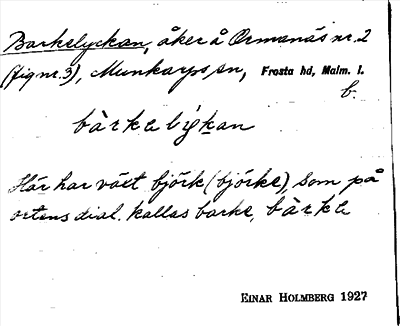 Barkelyckan, åker å Ormanäs nr. 2
(fig nr. 3), Munkarps sn, Frosta hd, Malm. l.
b.
bàrkelykan
Här har växt björk (björke), som på
ortens dial. kallas barke, bàrkə
EINAR HOLMBERG 1927